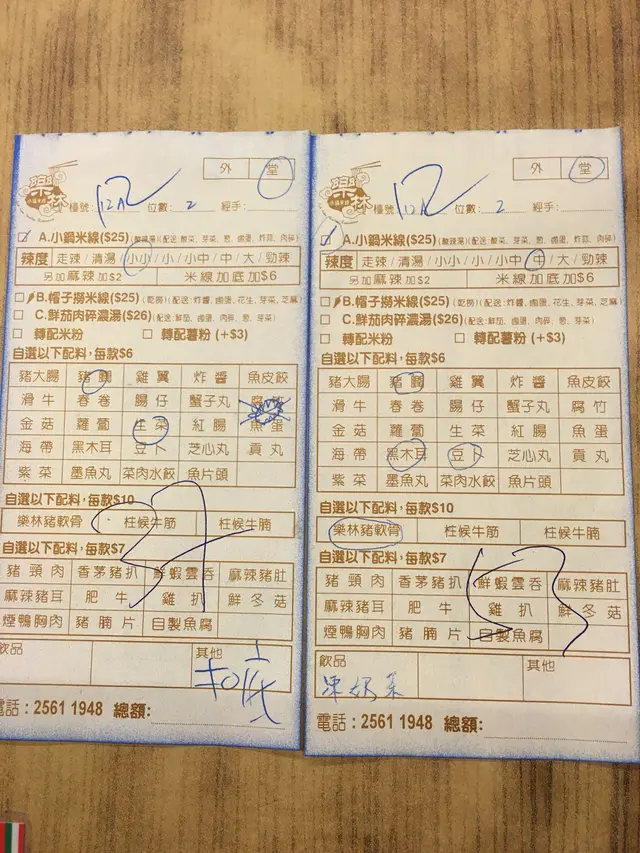 樂林
小鍋米線
外 堂
檯號: 12A 位數: 2 經手:
A.小鍋米線($25) (酸辣湯)(配送: 酸菜、芽菜、葱、鹵蛋、炸蒜、肉碎)
辣度 走辣/清湯/小小/小/小中/中/大/勁辣
另加麻辣加$2 米線加底加$6
B.帽子撈米線($25) (乾撈)(配送: 炸醬、鹵蛋、花生、芽菜、芝麻)
C.鮮茄肉碎濃湯($26) (配送:鮮茄、鹵蛋、肉碎、葱、芽菜)
轉配米粉 轉配薯粉 (+$3)
自選以下配料,每款$6
豬大腸 豬膶 雞翼 炸醬 魚皮餃
滑牛 春卷 腸仔 蟹子丸 腐竹
金菇 蘿蔔 生菜 紅腸 魚蛋
海帶 黑木耳 豆卜 芝心丸 貢丸
紫菜 墨魚丸 菜肉水餃 魚片頭
自選以下配料,每款$10
樂林豬軟骨 柱候牛筋 柱候牛腩
自選以下配料,每款$7
豬頸肉 香茅豬扒 鮮蝦雲吞 麻辣豬肚
麻辣豬耳 肥牛 雞扒 鮮冬菇
煙鴨胸肉 豬腩片 自製魚腐
飲品 其他
電話:2561 1948 總額:
樂林
小鍋米線
外 堂
檯號: 12A 位數: 2 經手:
A.小鍋米線($25) (酸辣湯)(配送: 酸菜、芽菜、葱、鹵蛋、炸蒜、肉碎)
辣度 走辣/清湯/小小/小/小中/中/大/勁辣
另加麻辣加$2 米線加底加$6
B.帽子撈米線($25) (乾撈)(配送: 炸醬、鹵蛋、花生、芽菜、芝麻)
C.鮮茄肉碎濃湯($26) (配送:鮮茄、鹵蛋、肉碎、葱、芽菜)
轉配米粉 轉配薯粉 (+$3)
自選以下配料,每款$6
豬大腸 豬膶 雞翼 炸醬 魚皮餃
滑牛 春卷 腸仔 蟹子丸 腐竹
金菇 蘿蔔 生菜 紅腸 魚蛋
海帶 黑木耳 豆卜 芝心丸 貢丸
紫菜 墨魚丸 菜肉水餃 魚片頭
自選以下配料,每款$10
樂林豬軟骨 柱候牛筋 柱候牛腩
自選以下配料,每款$7
豬頸肉 香茅豬扒 鮮蝦雲吞 麻辣豬肚
麻辣豬耳 肥牛 雞扒 鮮冬菇
煙鴨胸肉 豬腩片 自製魚腐
飲品 其他
凍奶茶
電話:2561 1948 總額: